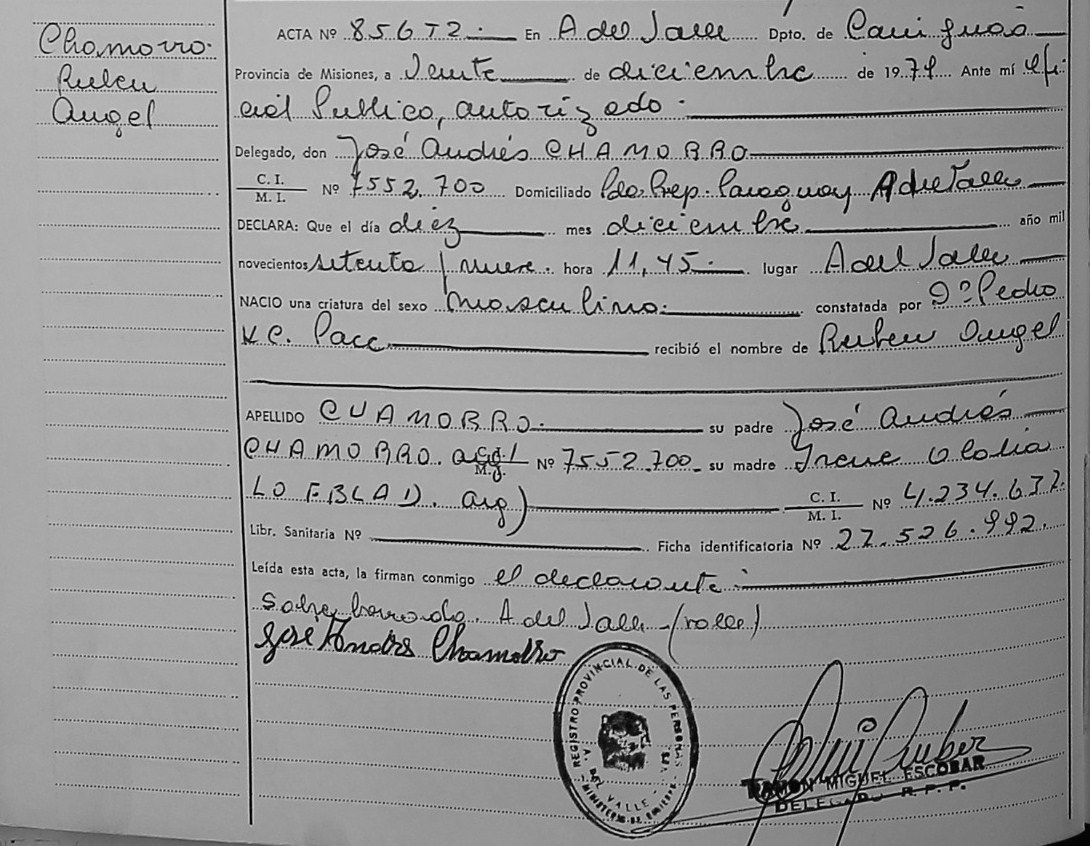 Chamorro.
Ruben
Angel
ACTA Nº 856 T2. En A del Valle Dpto. de Cainguás
Provincia de Misiones, a Veinte de diciembre de 1979 Ante mí Ofi-
cial Publico, autorizado.
Delegado, don José Andrés CHAMORRO
C. I. / M. I. Nº 7552.700 Domiciliado Pdo. Rep. Paraguay A del Valle
DECLARA: Que el día diez mes diciembre año mil
novecientos setenta y nueve. hora 11,45. lugar A del Valle
NACIO una criatura del sexo masculino. constatada por Dº Pedro
recibió el nombre de Ruben Angel
APELLIDO CHAMORRO. su padre José Andrés
CHAMORRO Nº 7552.700 su madre Irene
arg) C. I. / M. I. Nº 4.234.637.
Libr. Sanitaria Nº Ficha identificatoria Nº 27.526.992.
Leída esta acta, la firman conmigo el declarante.
Sobre borrado. A del Valle - (valle)
José Andrés Chamorro
REGISTRO PROVINCIAL DE LAS PERSONAS
A DEL VALLE
MINISTERIO DE GOBIERNO
RAMON MIGUEL ESCOBAR
DELEGADO R. P. P.